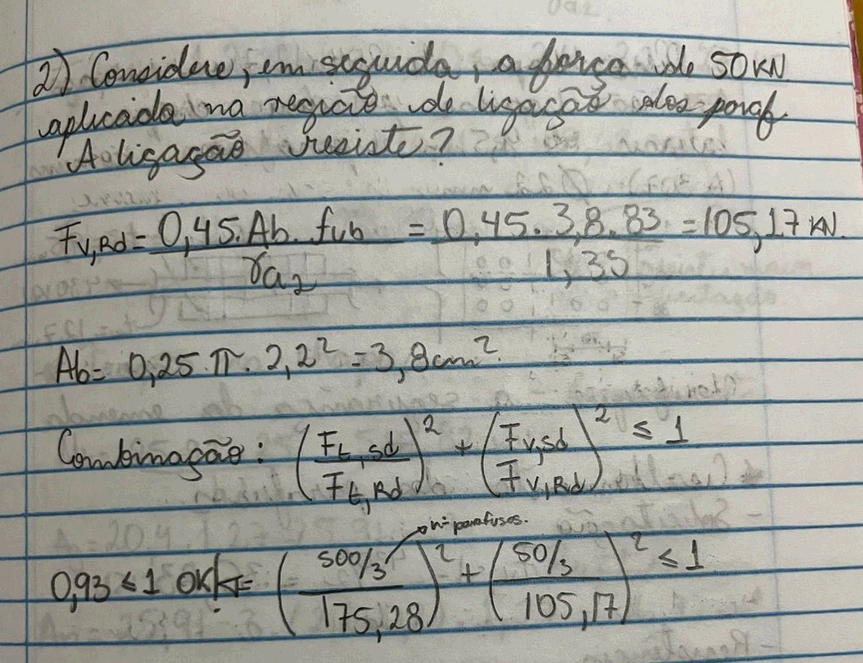 2) Considere, em seguida, a força de 50 KN
aplicada na região de ligação dos paraf
A ligação resiste?
Fv,Rd = 0,45.Ab.fub / γa2 = 0,45.3,8.83 / 1,35 = 105,17 KN.
Ab = 0,25.π.2,2² = 3,8cm².
Combinação: (Ft,sd / Ft,Rd)² + (Fv,sd / Fv,Rd)² ≤ 1
nº parafusos.
0,93 ≤ 1 OK = (500/3 / 175,28)² + (50/3 / 105,17)² ≤ 1